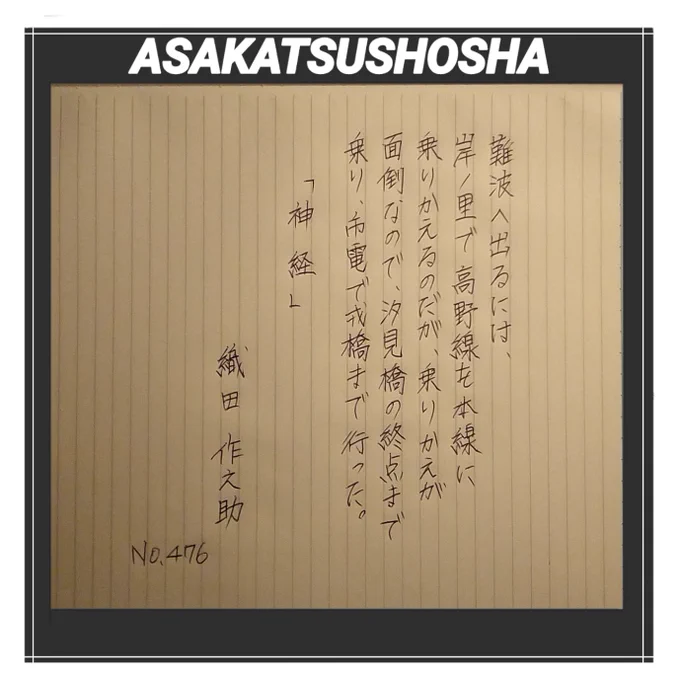 ASAKATSUSHOSHA
難波へ出るには、
岸ノ里で高野線を本線に
乗りかえるのだが、乗りかえが
面倒なので、汐見橋の終点まで
乗り、市電で戎橋まで行った。
「神経」
織田作之助
No.476